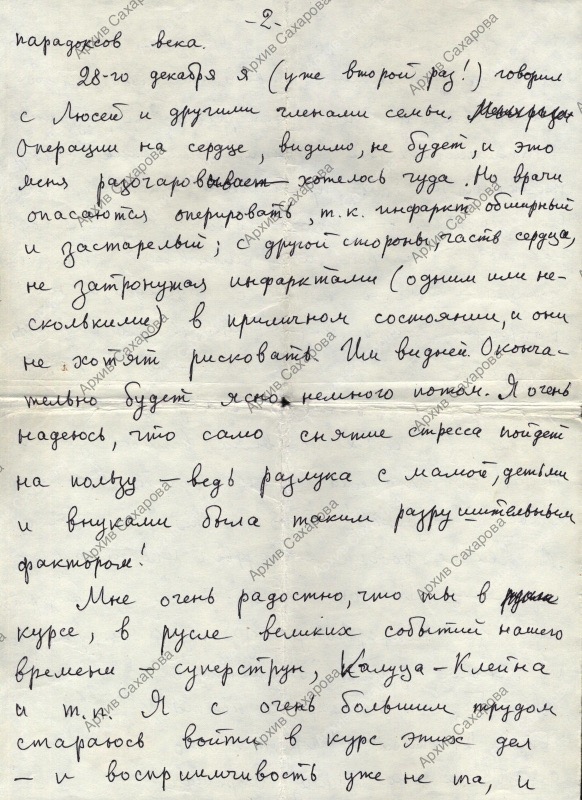 -2-
парадоксов века.
28-го декабря я (уже второй раз!) говорил
с Люсей и другими членами семьи.
Операции на сердце, видимо, не будет, и это
меня разочаровывает – хотелось чуда. Но врачи
опасаются оперировать, т.к. инфаркт обширный
и застарелый; с другой стороны, часть сердца,
не затронутая инфарктами (одним или не-
сколькими) в приличном состоянии, и они
не хотят рисковать. Им видней. Оконча-
тельно будет ясно немного потом. Я очень
надеюсь, что само снятие стресса пойдет
на пользу – ведь разлука с мамой, детьми
и внуками была таким разрушительным
фактором!
Мне очень радостно, что ты в
курсе, в русле великих событий нашего
времени – суперструн, Калуца-Клейна
и т.п. Я с очень большим трудом
стараюсь войти в курс этих дел
– и восприимчивость уже не та, и
Архив Сахарова